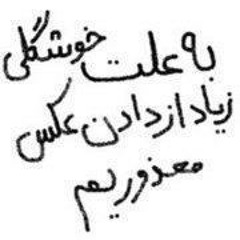 به علت خوشگلی
زیاد از دادن عکس
معذوریم